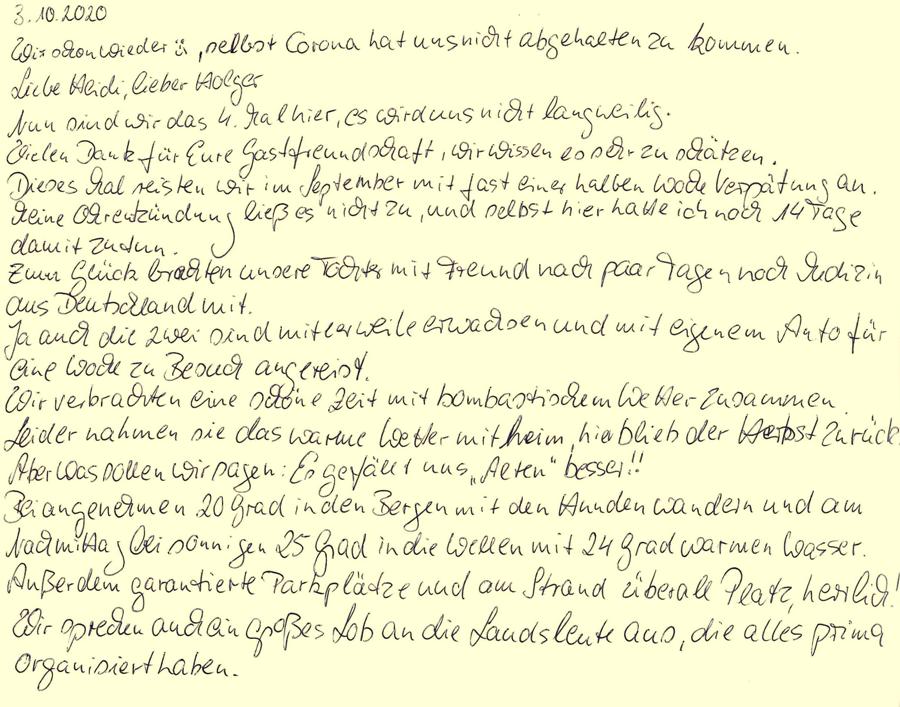 3.10.2020
Wir schon wieder ü, selbst Corona hat uns nicht abgehalten zu kommen.
Liebe Heidi, lieber Holger
Nun sind wir das 4. Mal hier, es wird uns nicht langweilig.
Vielen Dank für Eure Gastfreundschaft, wir wissen es sehr zu schätzen.
Dieses Mal reisten wir im September mit fast einer halben Woche Verspätung an.
Meine Ohrentzündung ließ es nicht zu, und selbst hier hatte ich noch 14 Tage
damit zu tun.
Zum Glück brachten unsere Töchter mit Freund nach paar Tagen noch Medizin
aus Deutschland mit.
Ja auch die zwei sind mitlerweile erwachsen und mit eigenem Auto für
eine Woche zu Besuch angereist.
Wir verbrachten eine schöne Zeit mit bombastischem Wetter zusammen.
Leider nahmen sie das warme Wetter mit heim, hier blieb der Herbst zurück.
Aber was sollen wir sagen: Es gefällt uns „Alten" besser!!
Bei angenehmen 20 Grad in den Bergen mit den Hunden wandern und am
Nachmittag bei sonnigen 25 Grad in die Wellen mit 24 Grad warmen Wasser.
Außerdem garantierte Parkplätze und am Strand überall Platz, herrlich!
Wir sprechen auch ein großes Lob an die Landsleute aus, die alles prima
organisiert haben.